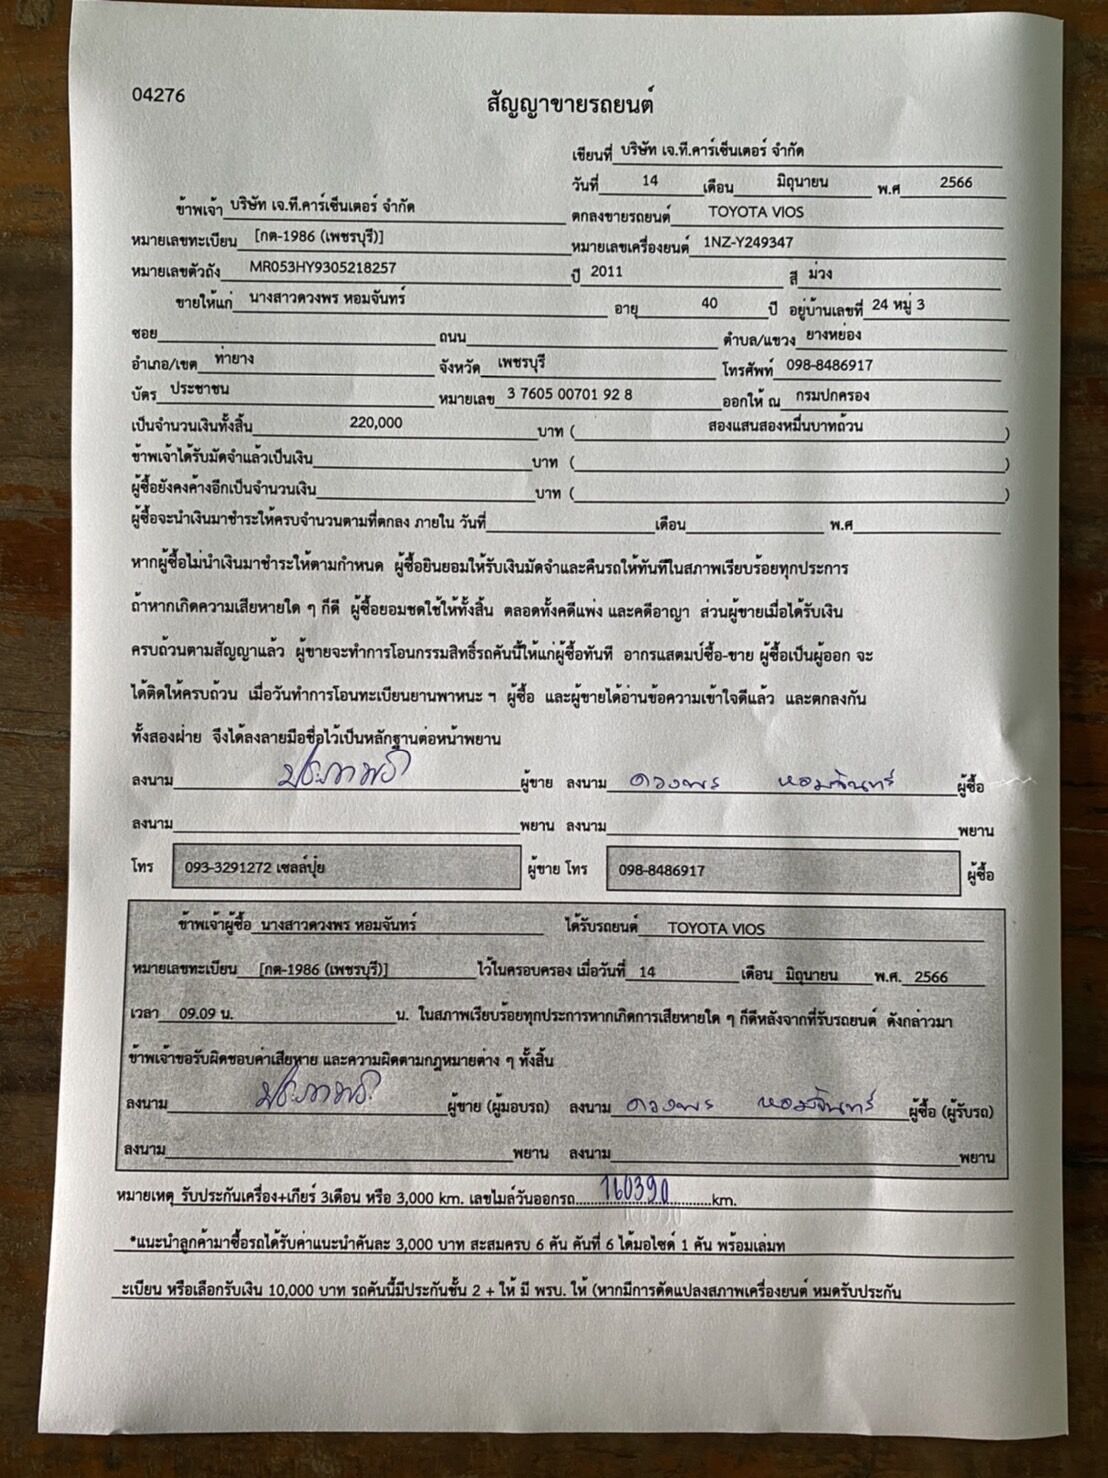 04276
สัญญาขายรถยนต์
เขียนที่ บริษัท เจ.ที.คาร์เซ็นเตอร์ จำกัด
วันที่ 14 เดือน มิถุนายน พ.ศ 2566
ข้าพเจ้า บริษัท เจ.ที.คาร์เซ็นเตอร์ จำกัด ตกลงขายรถยนต์ TOYOTA VIOS
หมายเลขทะเบียน [กต-1986 (เพชรบุรี)] หมายเลขเครื่องยนต์ 1NZ-Y249347
หมายเลขตัวถัง MR053HY9305218257 ปี 2011 สี ม่วง
ขายให้แก่ นางสาวดวงพร หอมจันทร์ อายุ 40 ปี อยู่บ้านเลขที่ 24 หมู่ 3
ซอย ถนน ตำบล/แขวง ยางหย่อง
อำเภอ/เขต ท่ายาง จังหวัด เพชรบุรี โทรศัพท์ 098-8486917
บัตร ประชาชน หมายเลข 3 7605 00701 92 8 ออกให้ ณ กรมปกครอง
เป็นจำนวนเงินทั้งสิ้น 220,000 บาท ( สองแสนสองหมื่นบาทถ้วน )
ข้าพเจ้าได้รับมัดจำแล้วเป็นเงิน บาท ( )
ผู้ซื้อยังคงค้างอีกเป็นจำนวนเงิน บาท ( )
ผู้ซื้อจะนำเงินมาชำระให้ครบจำนวนตามที่ตกลง ภายใน วันที่ เดือน พ.ศ
หากผู้ซื้อไม่นำเงินมาชำระให้ตามกำหนด ผู้ซื้อยินยอมให้รับเงินมัดจำและคืนรถให้ทันทีในสภาพเรียบร้อยทุกประการ
ถ้าหากเกิดความเสียหายใด ๆ ก็ดี ผู้ซื้อยอมชดใช้ให้ทั้งสิ้น ตลอดทั้งคดีแพ่ง และคดีอาญา ส่วนผู้ขายเมื่อได้รับเงิน
ครบถ้วนตามสัญญาแล้ว ผู้ขายจะทำการโอนกรรมสิทธิ์รถคันนี้ให้แก่ผู้ซื้อทันที อากรแสตมป์ซื้อ-ขาย ผู้ซื้อเป็นผู้ออก จะ
ได้ติดให้ครบถ้วน เมื่อวันทำการโอนทะเบียนยานพาหนะ ฯ ผู้ซื้อ และผู้ขายได้อ่านข้อความเข้าใจดีแล้ว และตกลงกัน
ทั้งสองฝ่าย จึงได้ลงลายมือชื่อไว้เป็นหลักฐานต่อหน้าพยาน
ลงนาม ผู้ขาย ลงนาม ดวงพร หอมจันทร์ ผู้ซื้อ
ลงนาม พยาน ลงนาม พยาน
โทร 093-3291272 เซลล์ปุ๋ย ผู้ขาย โทร 098-8486917 ผู้ซื้อ
ข้าพเจ้าผู้ซื้อ นางสาวดวงพร หอมจันทร์ ได้รับรถยนต์ TOYOTA VIOS
หมายเลขทะเบียน [กต-1986 (เพชรบุรี)] ไว้ในครอบครอง เมื่อวันที่ 14 เดือน มิถุนายน พ.ศ. 2566
เวลา 09.09 น. น. ในสภาพเรียบร้อยทุกประการหากเกิดการเสียหายใด ๆ ก็ดีหลังจากที่รับรถยนต์ ดังกล่าวมา
ข้าพเจ้าขอรับผิดชอบค่าเสียหาย และความผิดตามกฎหมายต่าง ๆ ทั้งสิ้น
ลงนาม ผู้ขาย (ผู้มอบรถ) ลงนาม ดวงพร หอมจันทร์ ผู้ซื้อ (ผู้รับรถ)
ลงนาม พยาน ลงนาม พยาน
หมายเหตุ รับประกันเครื่อง+เกียร์ 3เดือน หรือ 3,000 km. เลขไมล์วันออกรถ....160390....km.
*แนะนำลูกค้ามาซื้อรถได้รับค่าแนะนำคันละ 3,000 บาท สะสมครบ 6 คัน คันที่ 6 ได้มอไซด์ 1 คัน พร้อมเล่มท
ะเบียน หรือเลือกรับเงิน 10,000 บาท รถคันนี้มีประกันชั้น 2 + ให้ มี พรบ. ให้ (หากมีการดัดแปลงสภาพเครื่องยนต์ หมดรับประกัน